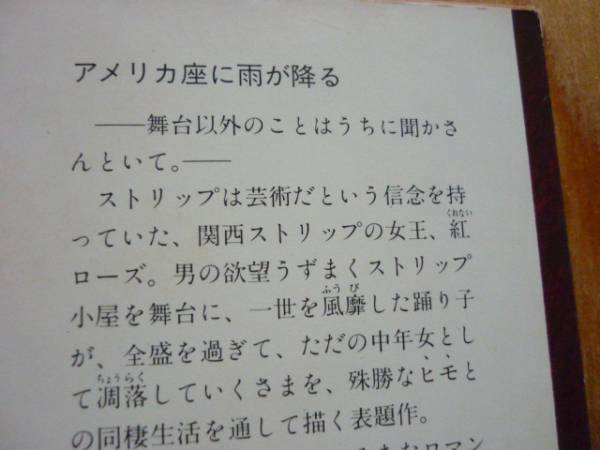 アメリカ座に雨が降る
――舞台以外のことはうちに聞かさ
んといて。――
ストリップは芸術だという信念を持
っていた、関西ストリップの女王、紅
くれない
ローズ。男の欲望うずまくストリップ
小屋を舞台に、一世を風靡した踊り子
ふうび
が、全盛を過ぎて、ただの中年女とし
て凋落していくさまを、殊勝なヒモと
ちょうらく
の同棲生活を通して描く表題作。
ロマン